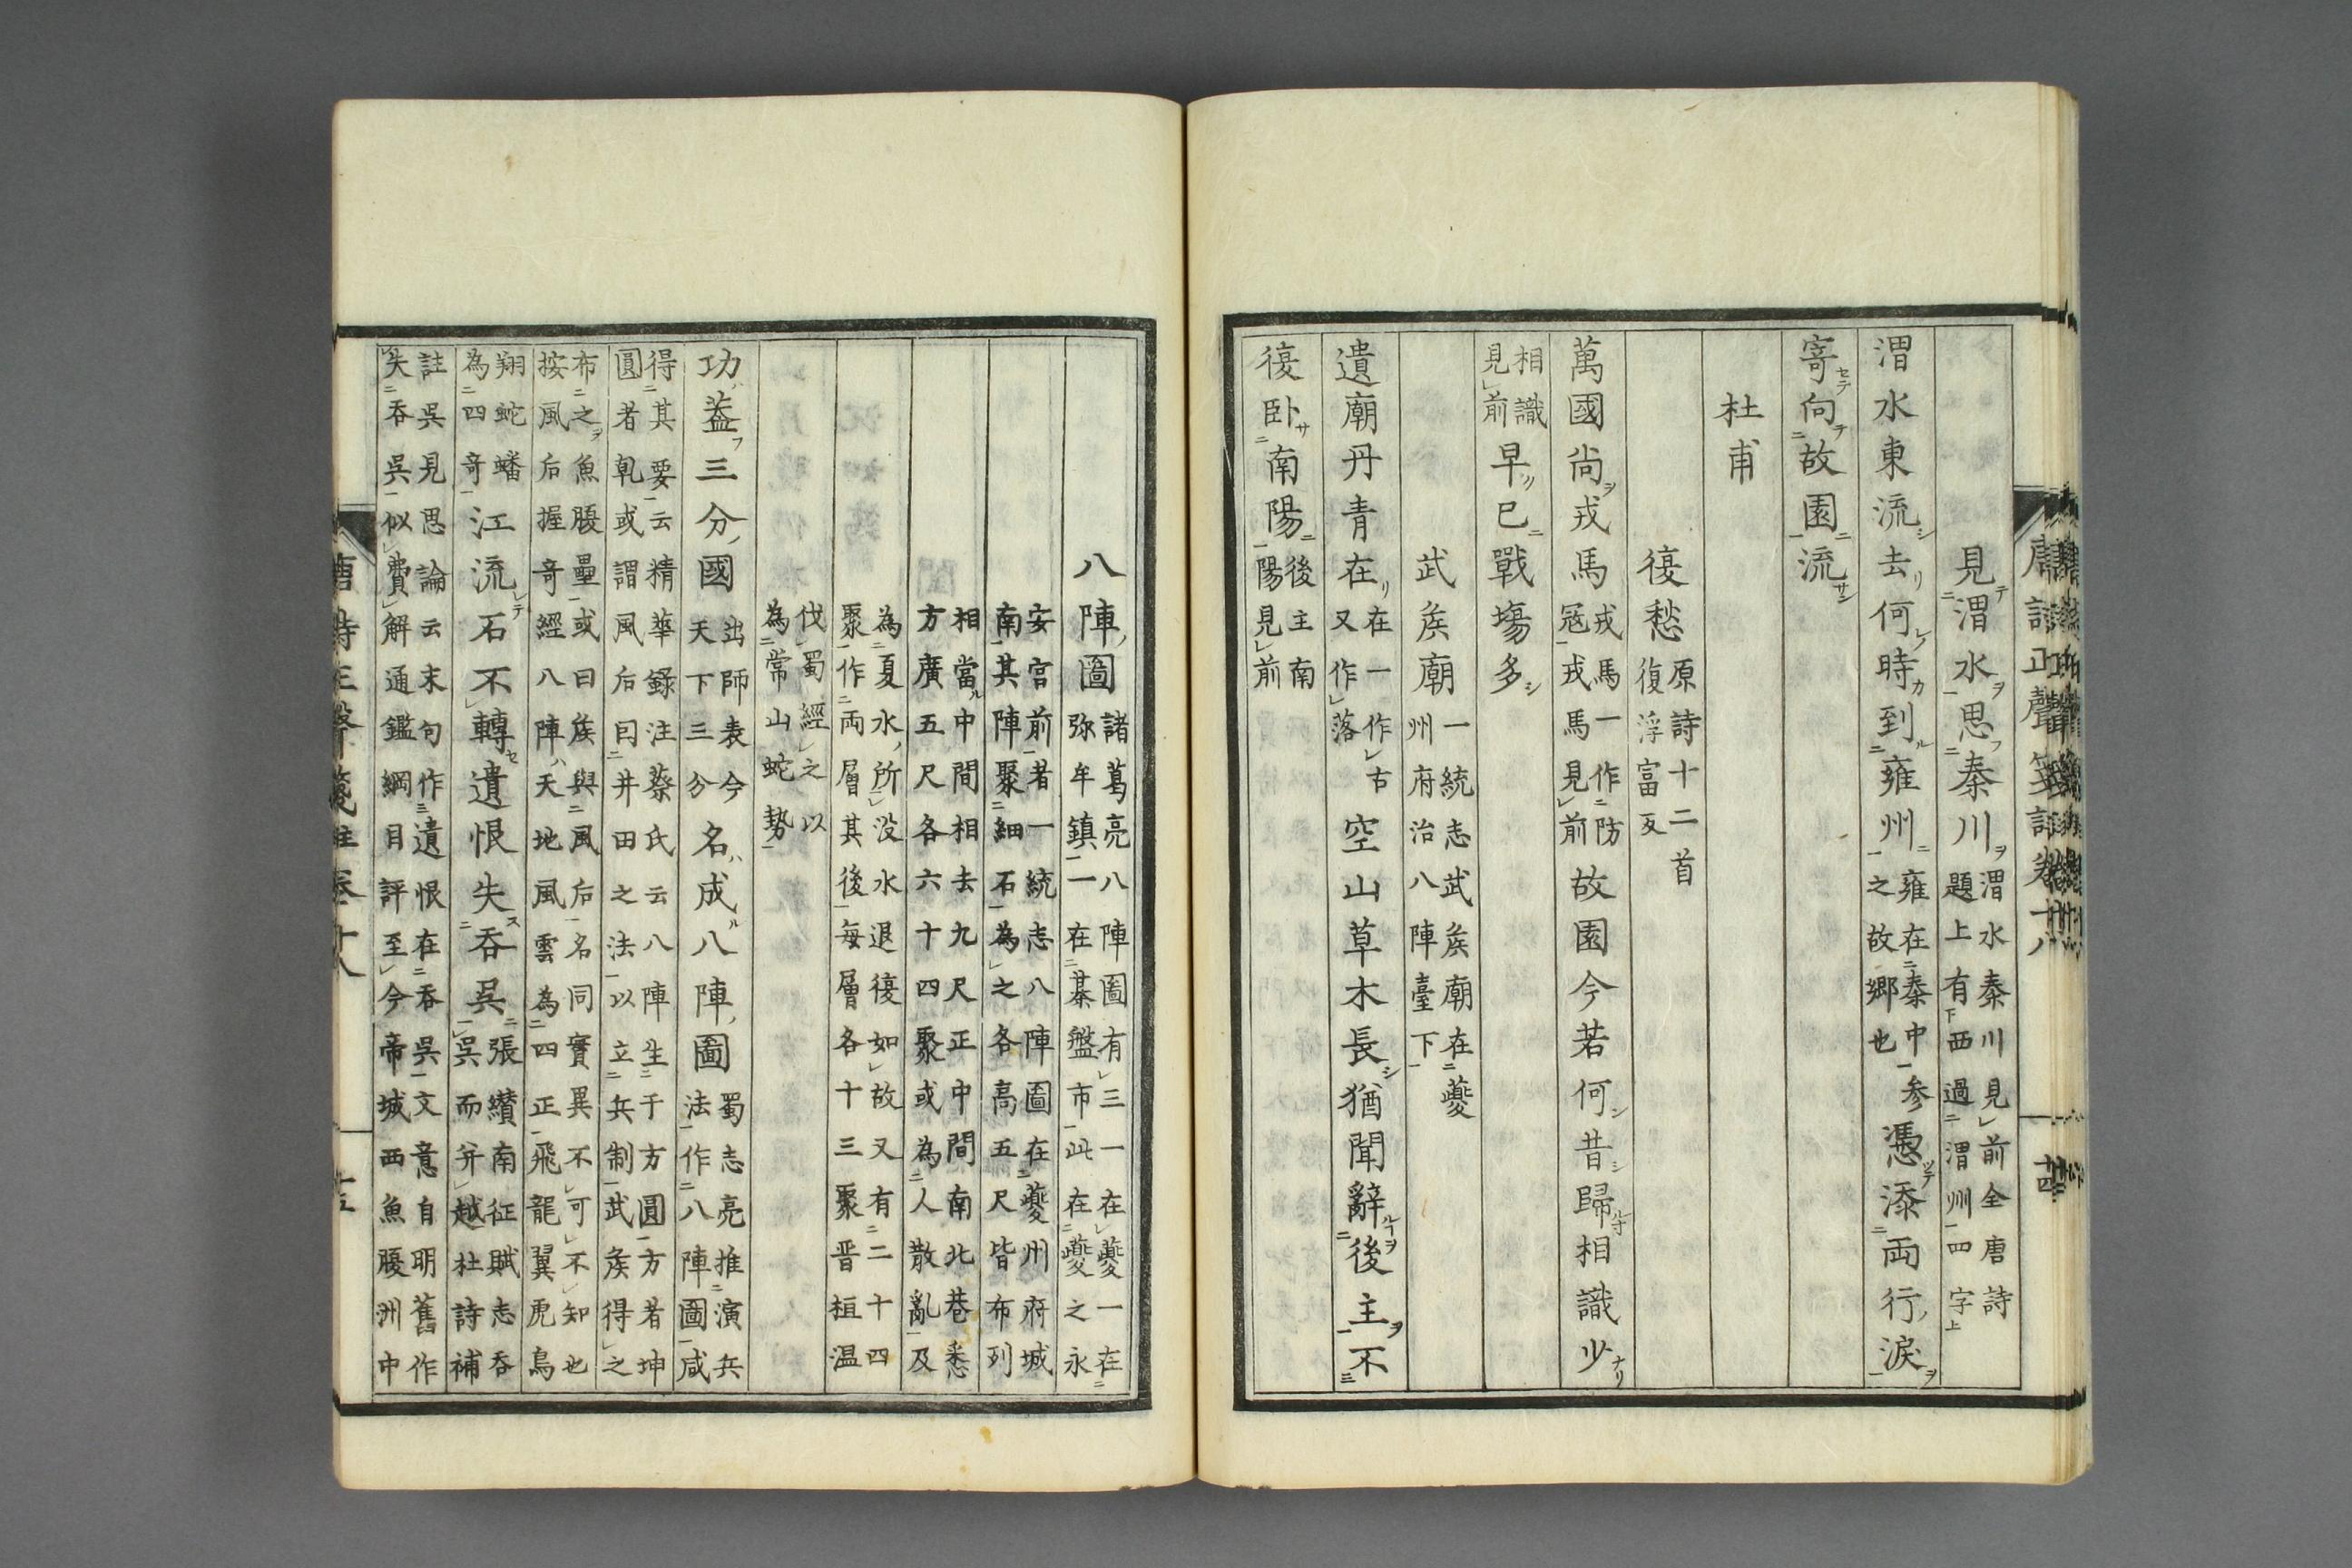 唐詩正聲箋註卷十八 十四
見渭水思秦川渭水秦川見前全唐詩題上有西過渭州四字
渭水東流去何時到雍州雍在秦中参之故郷也憑添両行淚
寄向故園流
杜甫
復愁原詩十二首復浮富反
萬國尚戎馬戎馬一作防冦戎馬見前故園今若何昔歸相識少
相識見前早已戰塲多
武矦廟一統志武矦廟在夔州府治八陣臺下
遺廟丹青在在一作古又作落空山草木長猶聞辭後主不
復卧南陽後主南陽見前
八陣圖諸葛亮八陣圖有三一在夔一在弥牟鎮一在棊盤市此在夔之永
安宮前者一統志八陣圖在夔州府城南其陣聚細石為之各高五尺皆布列
相當中間相去九尺正中間南北巷悉方廣五尺各六十四聚或為人散亂及
為夏水所没水退復如故又有二十四聚作両層其後每層各十三聚晋桓温
伐蜀經之以為常山蛇勢
功蓋三分國出師表今天下三分名成八陣圖蜀志亮推演兵法作八陣圖咸
得其要云精華錄注蔡氏云八陣生于方圓方者坤圓者乹或謂風后因井田之法以立兵制武矦得之
布之魚腹壘或曰矦與風后名同實異不可不知也按風后握奇經八陣天地風雲為四正飛龍翼虎鳥
翔蛇蟠為四奇江流石不轉遺恨失吞吳張纘南征賦志吞吳而并越杜詩補
註吳見思論云末句作遺恨在吞吳文意自明舊作失吞吳似費解通鑑綱目評至今帝城西魚腹洲中
唐詩正聲箋註卷十八 十五